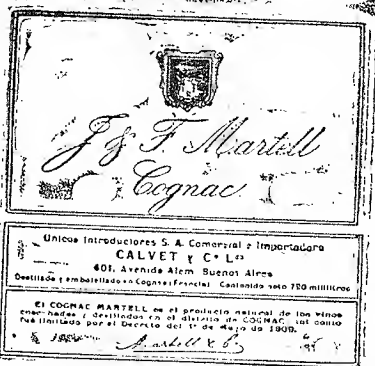 J & F. Martell
Cognac
Unicos Introductores S. A. Comercial e Importadora
CALVET y Cº Lda
401, Avenida Alem Buenos Aires
Destilado y embotellado en Cognac (Francia) Contenido neto 700 mililitros
El COGNAC MARTELL es el producto natural de los vinos
cosechados y destilados en el distrito de COGNAC, tal como
fué limitado por el Decreto del 1º de Mayo de 1909.
Martell & Co